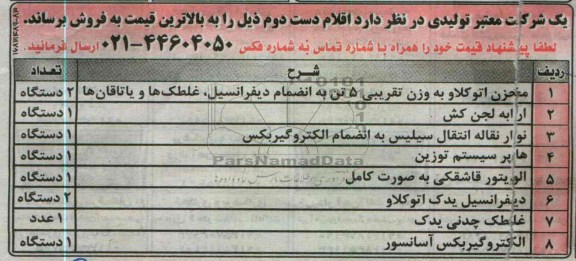 یک شرکت معتبر تولیدی در نظر دارد اقلام دست دوم ذیل را به بالاترین قیمت به فروش برساند.
لطفا پیشنهاد قیمت خود را همراه با شماره تماس به شماره فکس ۴۴۶۰۴۰۵۰-۰۲۱ ارسال فرمائید.
ردیف شرح تعداد
۱ مخزن اتوکلاو به وزن تقریبی ۵ تن به انضمام دیفرانسیل، غلطک‌ها و یاتاقان‌ها ۲ دستگاه
۲ ارابه لجن کش ۱ دستگاه
۳ نوار نقاله انتقال سیلیس به انضمام الکتروگیربکس ۱ دستگاه
۴ هاپر سیستم توزین ۱ دستگاه
۵ الویتور قاشقکی به صورت کامل ۱ دستگاه
۶ دیفرانسیل یدک اتوکلاو ۲ دستگاه
۷ غلطک چدنی یدک ۱ عدد
۸ الکتروگیربکس آسانسور ۱ دستگاه
ParsNamadData